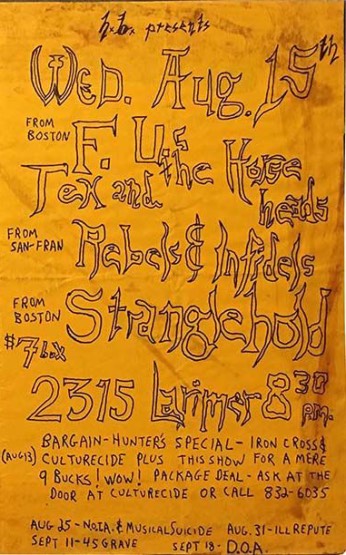 h.b. presents
Wed. Aug. 15th
FROM BOSTON F. U.s
Tex and the Horse heads
FROM SAN-FRAN Rebels & Infidels
FROM BOSTON Stranglehold
$7 bx
2315 Larimer 8 30 P.M.
BARGAIN-HUNTER'S SPECIAL - IRON CROSS &
(AUG 13) CULTURECIDE PLUS THIS SHOW FOR A MERE
9 BUCKS! WOW! PACKAGE DEAL - ASK AT THE
DOOR AT CULTURECIDE OR CALL 832-6035
AUG 25 - N.O.T.A. & MUSICAL SUICIDE AUG. 31 - ILL REPUTE
SEPT 11 - 45 GRAVE SEPT 18 - D.O.A.